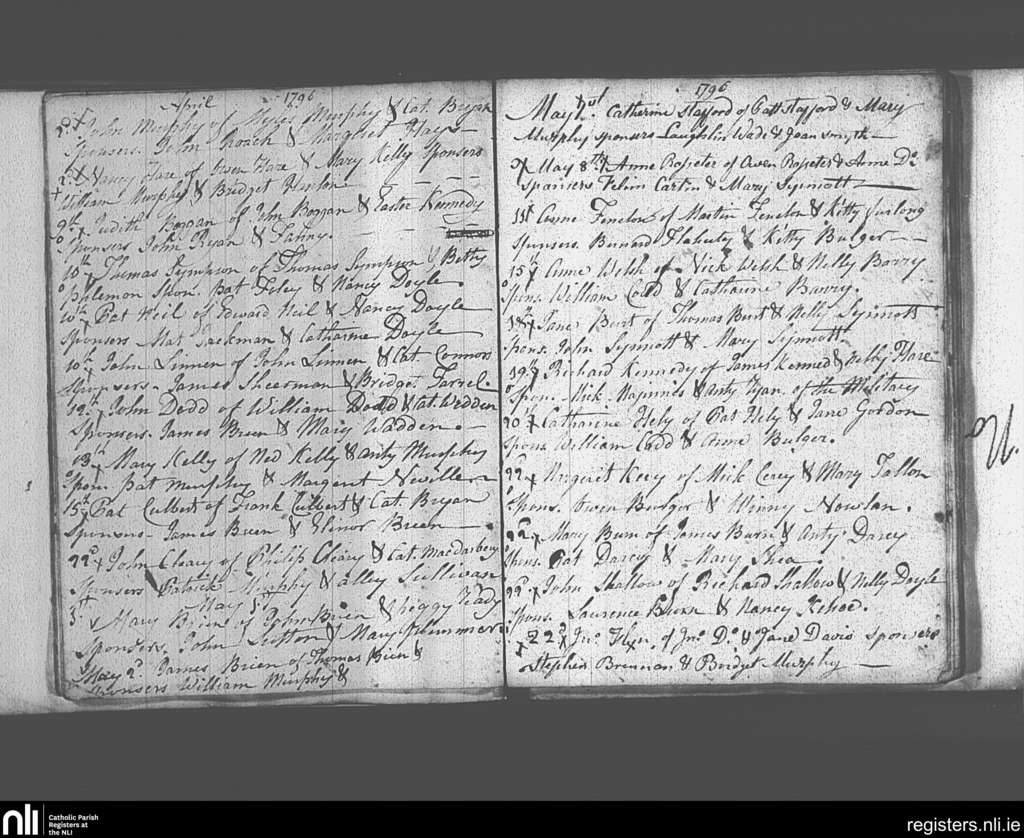 April 1796
John Murphy of Myles Murphy & Cat. Bryan
Sponsers. John Roach & Margret Hays
Nancy Hare of Owen Hare & Mary Kelly Sponsers
William Murphy & Bridget
9th Judith Boggan of John Boggan & Easter Kennedy
Sponsers John Ryan & Fanny.
10th Thomas Sympson of Thomas Sympson & Betty
Philemon Spon. Pat Foley & Nancy Doyle
10th Pat Neil of Edward Neil & Nancy Doyle
Sponsers Mat Jackman & Catharine Doyle
10th John Linnen of John Linnen & Cat Connors
Sponsers. James Sheerman & Bridget Farrel.
12th John Dodd of William Dodd & Cat. Wedden
Sponsers. James Breen & Mary Wadden.
13th Mary Kelly of Ned Kelly & Anty Murphy
Spons. Pat Murphy & Margaret
15th Pat Culbert of Frank Culbert & Cat. Bryan
Sponsers. James Breen & Elinor Breen
22d John Cleary of Philip Cleary & Cat.
Sponsers Patrick Murphy & Alley Sullivan
May 1st
Mary Brien of John Brien & Peggy
Sponsers. John Sutton & Mary Plummer
May 2d. James Brien of Thomas Brien &
Sponsers William Murphy &
1796
May 2nd. Catherine Stafford of Patt Stafford & Mary
Murphy sponsers Laughlin Wade & Jean Smyth
May 8th Anne Rosseter of Owen Rosseter & Anne Do.
Sponsers Felim Cartin & Mary Synnott
11th Anne Fenelon of Martin Fenelon & Kitty Furlong
Sponsers. Bernard Flaherty & Kitty Bulger
15th Anne Welsh of Nick Welsh & Nelly Barry
Spons. William Codd & Catharine Barry.
18th Jane Burt of Thomas Burt & Nelly Synnott
Spons. John Synnott & Mary Synnott.
19th Richard Kennedy of James Kenned & Nelly Hare
Spons. Mick. Maginnis & Anty Ryan. of the Militacy
20th Catharine Hely of Pat Hely & Jane Gordon
Spons. William Codd & Anne Bulger.
22d Margaret Kevy of Mick Cevey & Mary Tallon
Spons. Owen Bulger & Winny Nowlan.
22d Mary Burn of James Burn & Anty Darcy
Spons. Pat Darcy & Mary Shea
22d John Shallow of Richard Shallow & Nelly Doyle
Spons. Laurence Burn & Nancy Kehoe.
22d Jno. Flyn. of Jno. Do. & Jane Davis Sponsers
Stephen Brennan & Bridget Murphy
nli
Catholic Parish
Registers at
the NLI
registers.nli.ie